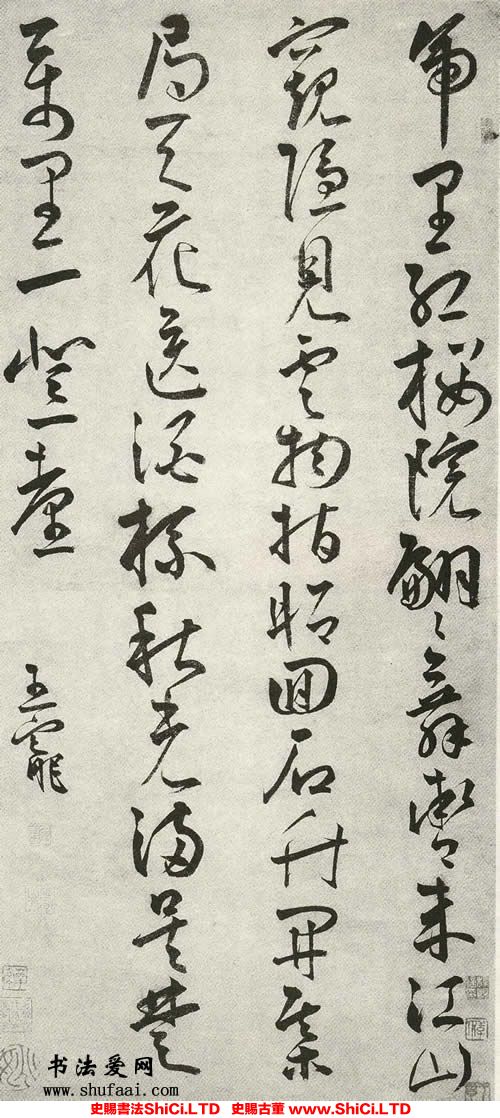 帝里紅樓院翩〻舞來江山
窺隱見雲物指昭回石竹開棊
局天花送酒杯秋光滿吳楚
萬里一登臺
王寵
书法爱网
www.shufaai.com
史賜書法ShiCi.LTD 史賜古董 www.ShiCi.LTD